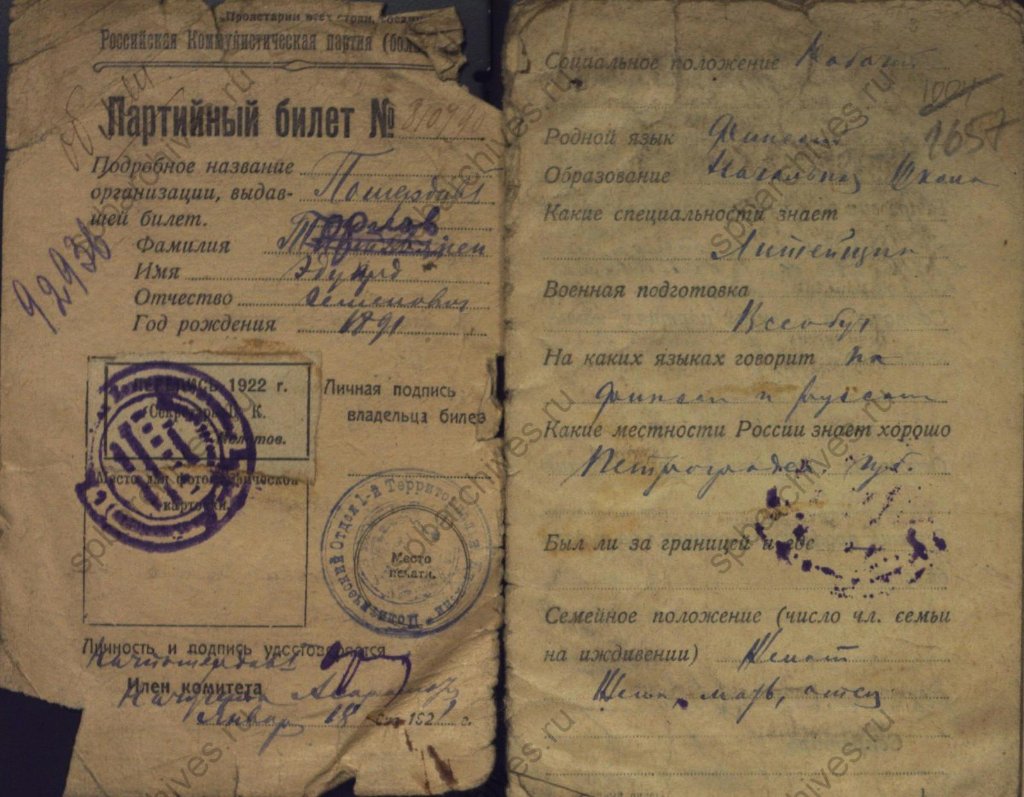 Пролетарии всех стран, соеди
Российская Коммунистическая партия (бол
Партийный билет №
Подробное название
организации, выдав-
шей билет.
Фамилия
Имя Эдуард
Отчество Семенович
Год рождения 1891
92936
ПЕРЕПИСЬ 1922 г.
Секретарь Ц. К.
Молотов.
Место для фотографической
карточки.
Личная подпись
владельца билета
Политический Отдел 1-й Территориальн
Место
печати.
Личность и подпись удостоверяется
Член комитета
Январ 18 192 г.
Социальное положение Рабоч
1657
Родной язык Финский
Образование Начальная Школа
Какие специальности знает
Литейщик
Военная подготовка
Всеобуч
На каких языках говорит на
финском и русском
Какие местности России знает хорошо
Петроградск. губ.
Был ли за границей и где
Семейное положение (число чл. семьи
на иждивении) Женат
Жена, мать, отец
spbarchives.ru